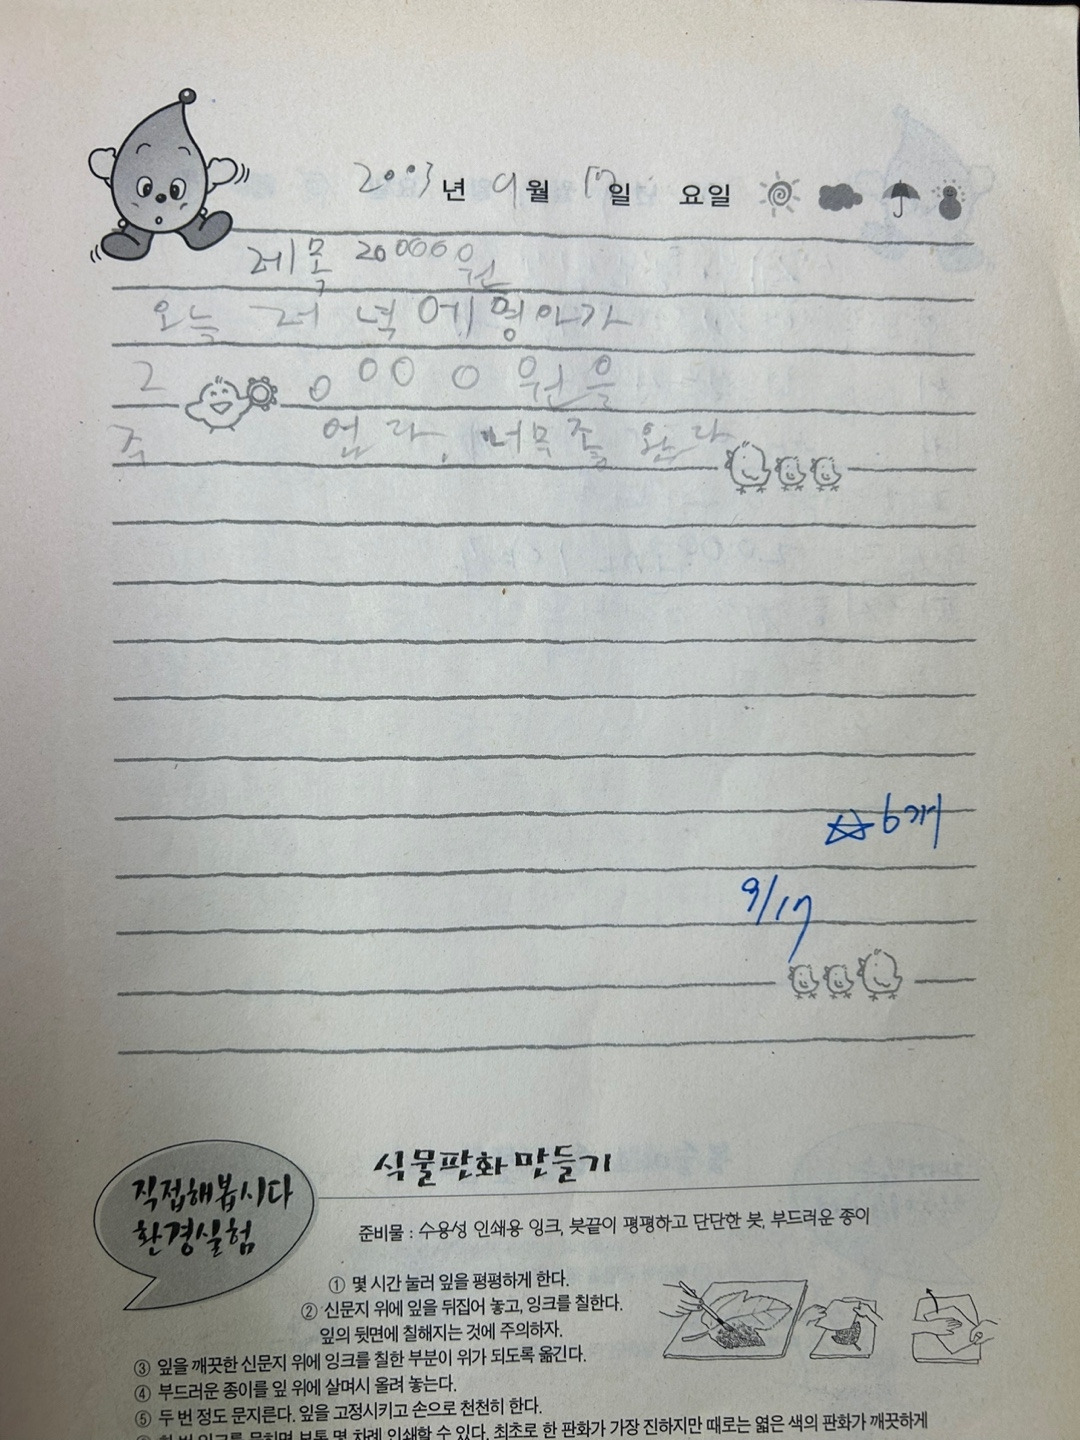 2003년 9월 17일 요일
제목 20000원
오늘 저녁에 형아가
2 0000원을
주 업다. 너무 조왔다
☆6개
9/17
직접해봅시다
환경실험
식물판화 만들기
준비물 : 수용성 인쇄용 잉크, 붓끝이 평평하고 단단한 붓, 부드러운 종이
① 몇 시간 눌러 잎을 평평하게 한다.
② 신문지 위에 잎을 뒤집어 놓고, 잉크를 칠한다.
잎의 뒷면에 칠해지는 것에 주의하자.
③ 잎을 깨끗한 신문지 위에 잉크를 칠한 부분이 위가 되도록 옮긴다.
④ 부드러운 종이를 잎 위에 살며시 올려 놓는다.
⑤ 두 번 정도 문지른다. 잎을 고정시키고 손으로 천천히 한다.
한 번 잉크를 묻히면 보통 몇 차례 인쇄할 수 있다. 최초로 한 판화가 가장 진하지만 때로는 엷은 색의 판화가 깨끗하게